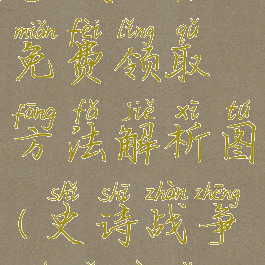 miǎn fèi lǐng qǔ
免费领取
fāng fǎ jiě xī tú
方法解析图
shǐ shī zhàn zhēng
(史诗战争